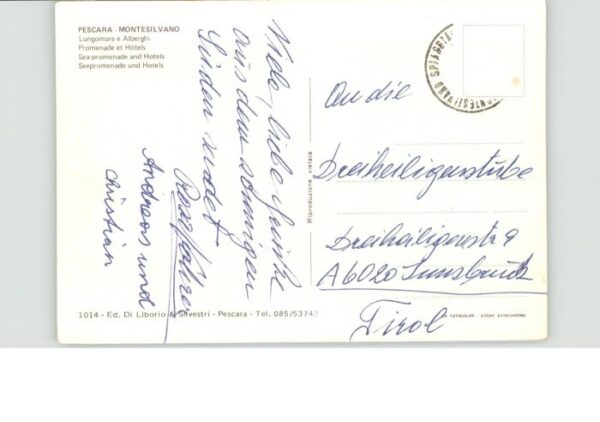 PESCARA - MONTESILVANO
Lungomare e Alberghi
Promenade et Hôtels
Sea-promenade and Hotels
Seepromenade und Hotels
Viele, liebe Grüße
aus dem sonnigen
Süden sendet
Andreas und
Christian
Riproduzione vietata
MONTESILVANO SPIAGGIA
An die
Dreiheiligenstube
Dreiheiligenstr 9
A6020 Innsbruck
Tirol
1014 - Ed. Di Liborio & Silvestri - Pescara - Tel. 085/53742
FOTOCOLOR KODAK EKTACHROME